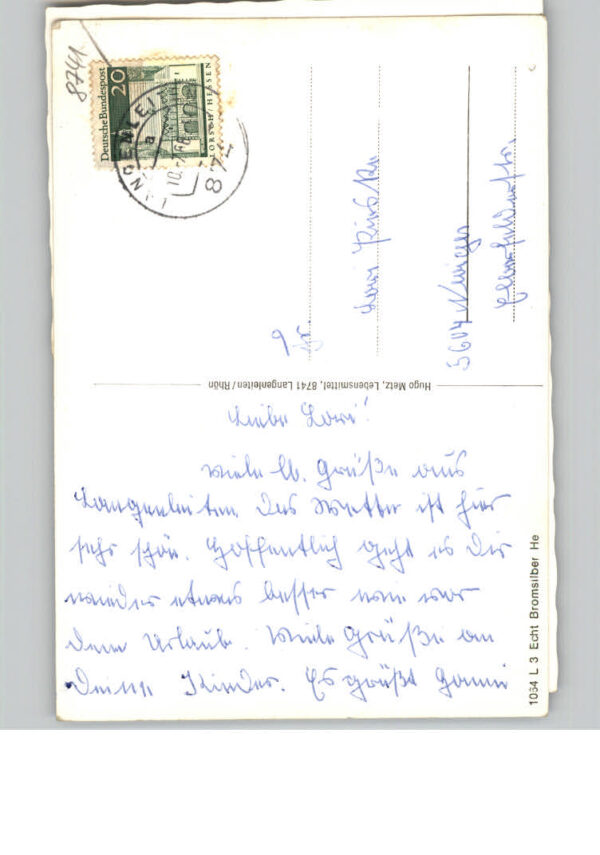 8741.
Deutsche Bundespost
20
LORSCH/HESSEN
LANGENLEITEN
a
874
Fr.
Lori
5604
Hugo Metz, Lebensmittel, 8741 Langenleiten/Rhön
Liebe Lori!
Viele lb. Grüße aus
Langenleiten. Das Wetter ist hier
sehr schön. Hoffentlich geht es Dir
wieder etwas besser wie vor
dem Urlaub. Viele Grüße an
Deine Kinder. Es grüßt
1064 L 3 Echt Bromsilber He